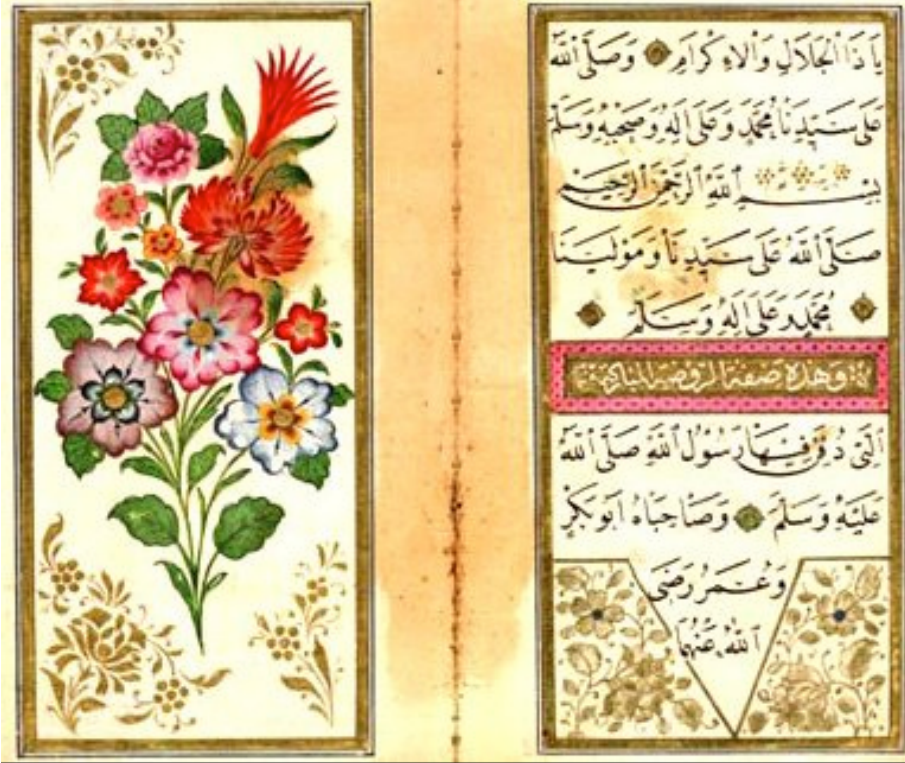 يَا ذَا الْجَلَالِ وَالْاِكْرَامِ وَصَلَّى اللّٰهُ
عَلَى سَيِّدِنَا مُحَمَّدٍ وَعَلَى اٰلِهِ وَصَحْبِهِ وَسَلَّمَ
بِسْمِ اللّٰهِ الرَّحْمٰنِ الرَّحِيمِ
صَلَّى اللّٰهُ عَلَى سَيِّدِنَا وَمَوْلَيْنَا
مُحَمَّدٍ وَعَلَى اٰلِهِ وَسَلَّمَ
وهذه صفة الروضة المباركة
الَّتِى دُفِنَ فِيهَا رَسُولُ اللّٰهِ صَلَّى اللّٰهُ
عَلَيْهِ وَسَلَّمَ وَصَاحِبَاهُ اَبُو بَكْرٍ
وَعُمَرُ رَضِىَ
اللّٰهُ عَنْهُمَا